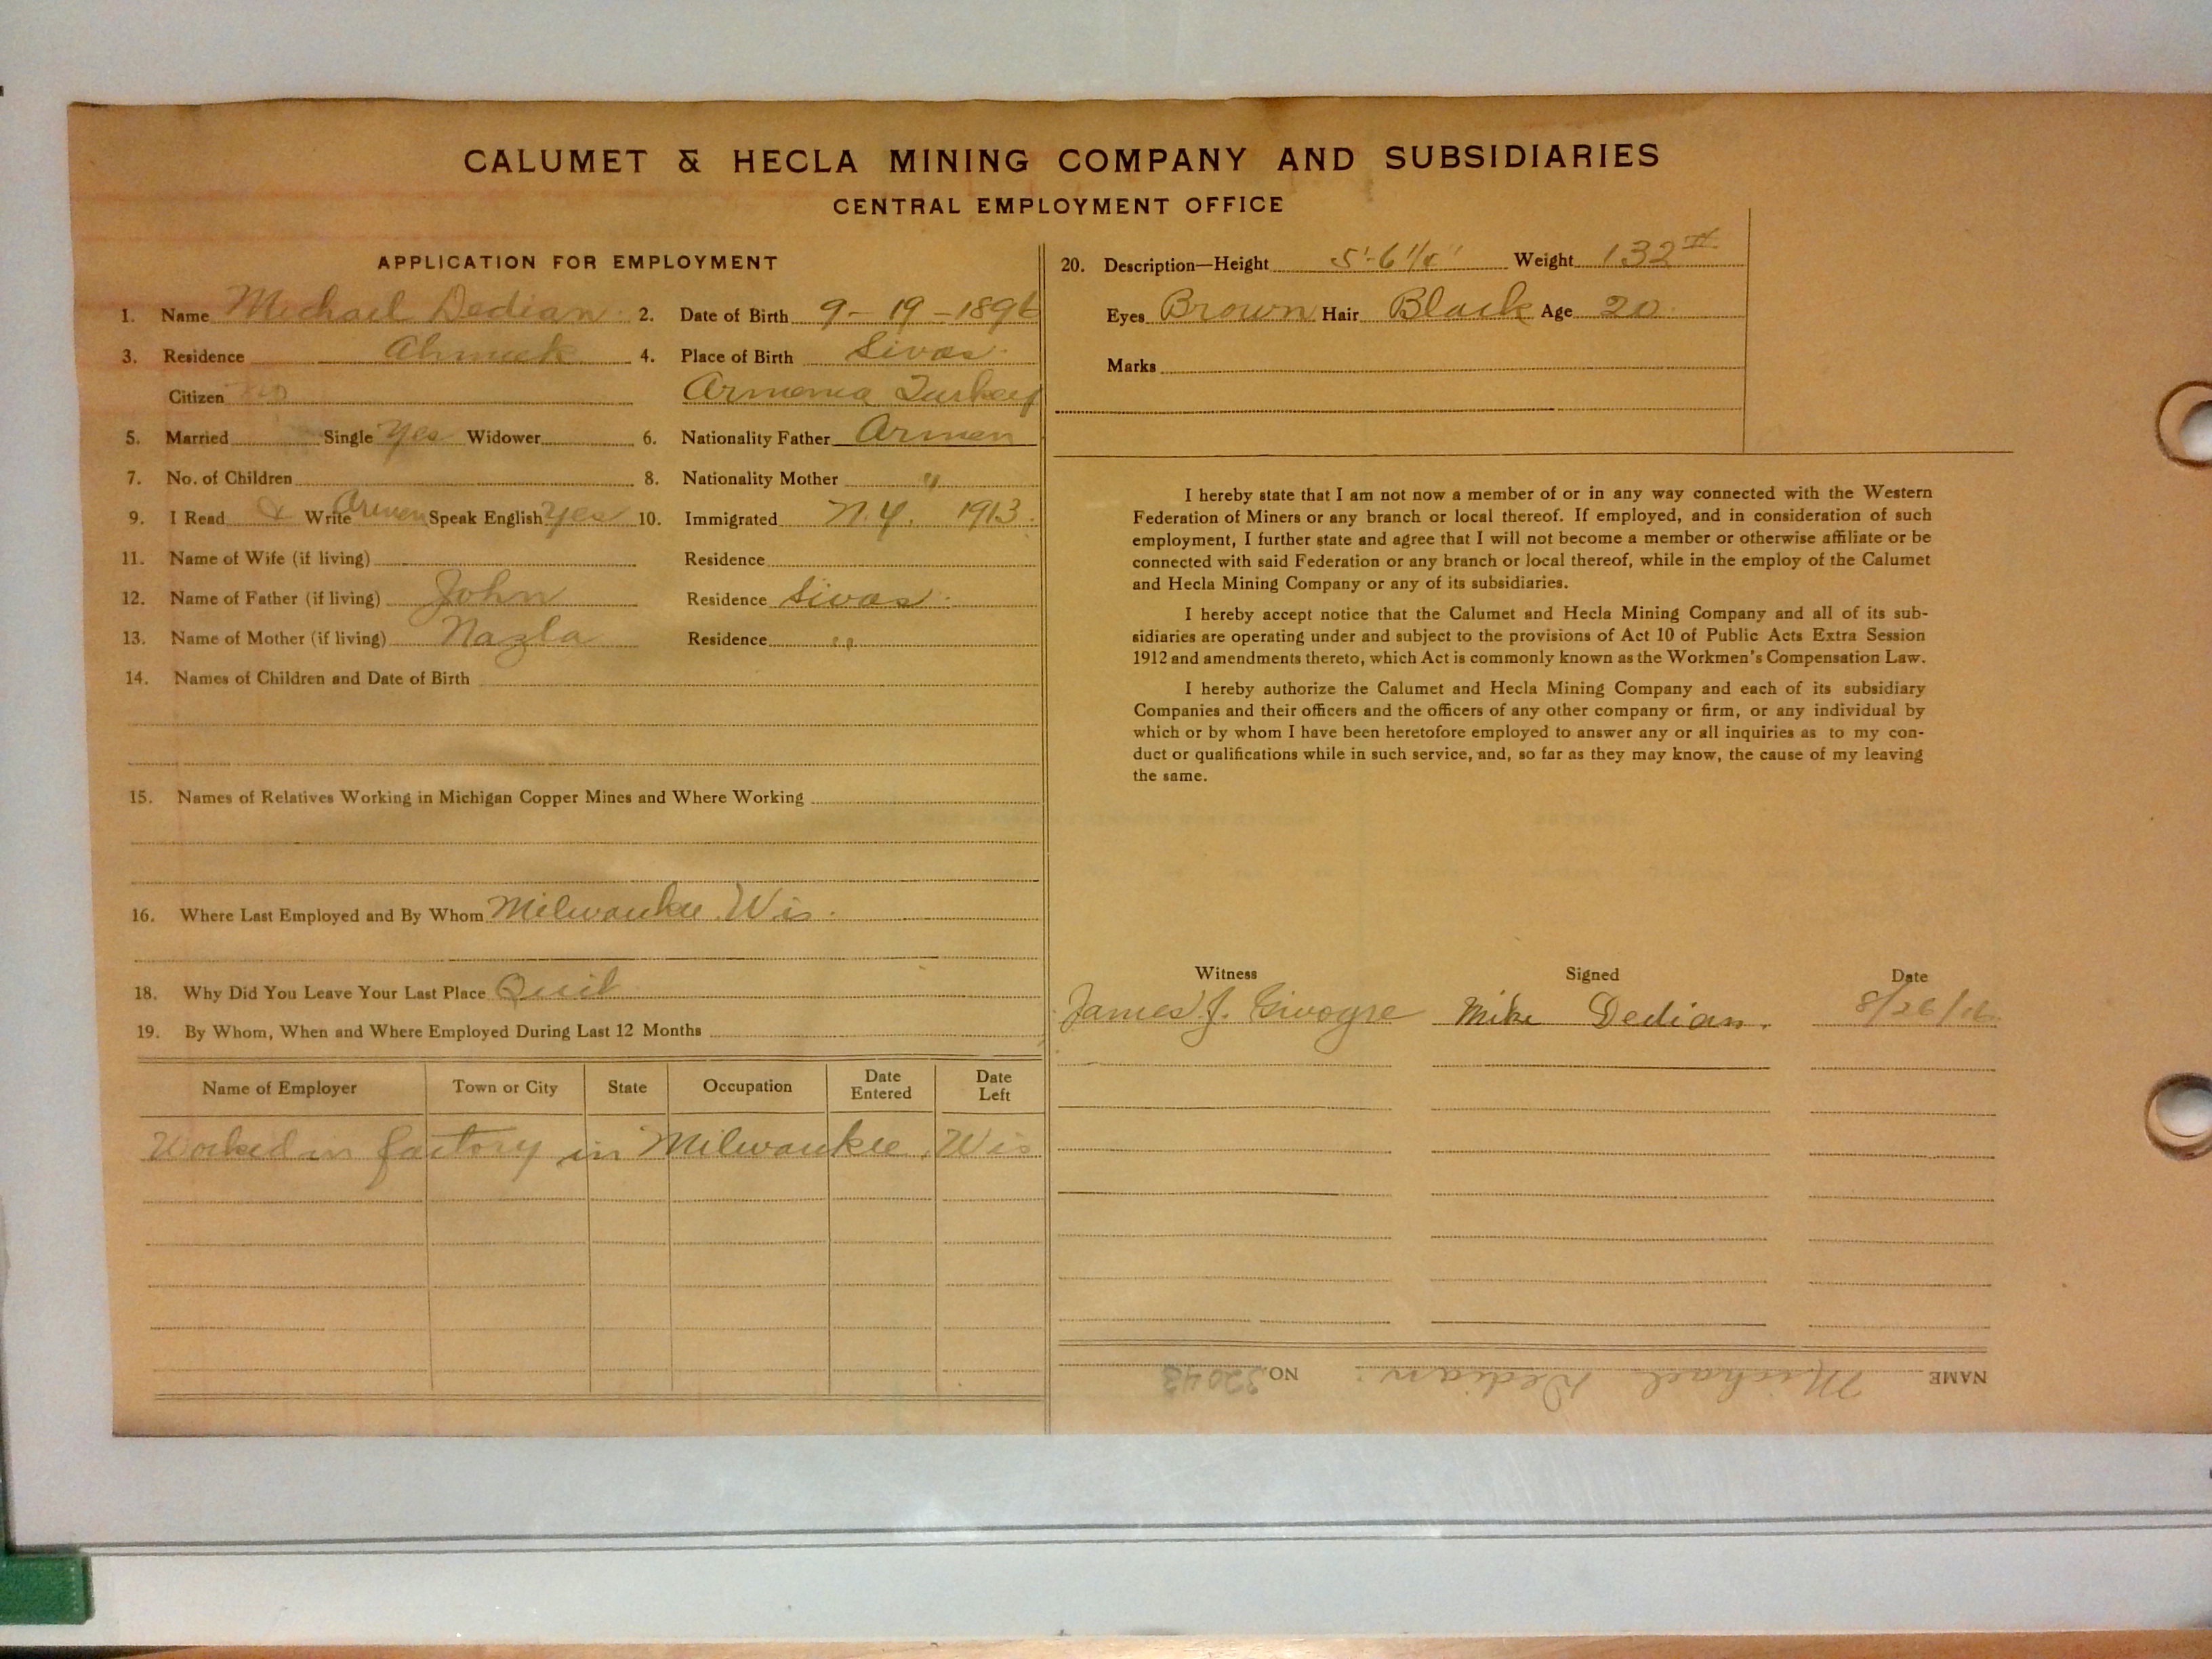 CALUMET & HECLA MINING COMPANY AND SUBSIDIARIES
CENTRAL EMPLOYMENT OFFICE
APPLICATION FOR EMPLOYMENT
1. Name Michael Dedian 2. Date of Birth 9-19-1896
3. Residence Ahmeek 4. Place of Birth Sivas
Citizen Armenia Turkey
5. Married Single Yes Widower 6. Nationality Father Armen
7. No. of Children 8. Nationality Mother "
9. I Read & Write Armen Speak English yes 10. Immigrated N.Y. 1913
11. Name of Wife (if living) Residence
12. Name of Father (if living) John Residence Sivas
13. Name of Mother (if living) Nazla Residence "
14. Names of Children and Date of Birth
15. Names of Relatives Working in Michigan Copper Mines and Where Working
16. Where Last Employed and By Whom Milwaukee, Wis.
18. Why Did You Leave Your Last Place Quit
19. By Whom, When and Where Employed During Last 12 Months
Name of Employer Town or City State Occupation Date Entered Date Left
Worked in factory in Milwaukee, Wis
20. Description—Height 5'-6 1/4" Weight 132
Eyes Brown Hair Black Age 20
Marks
I hereby state that I am not now a member of or in any way connected with the Western
Federation of Miners or any branch or local thereof. If employed, and in consideration of such
employment, I further state and agree that I will not become a member or otherwise affiliate or be
connected with said Federation or any branch or local thereof, while in the employ of the Calumet
and Hecla Mining Company or any of its subsidiaries.
I hereby accept notice that the Calumet and Hecla Mining Company and all of its sub-
sidiaries are operating under and subject to the provisions of Act 10 of Public Acts Extra Session
1912 and amendments thereto, which Act is commonly known as the Workmen's Compensation Law.
I hereby authorize the Calumet and Hecla Mining Company and each of its subsidiary
Companies and their officers and the officers of any other company or firm, or any individual by
which or by whom I have been heretofore employed to answer any or all inquiries as to my con-
duct or qualifications while in such service, and, so far as they may know, the cause of my leaving
the same.
Witness Signed Date
James J. Mike Dedian. 8/26/16
NAME Michael Dedian. NO. 32043